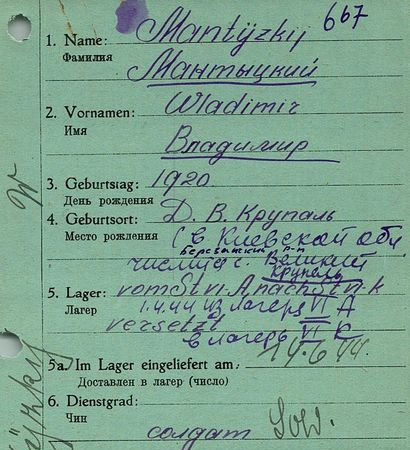 667
1. Name: Mantÿzkij
Фамилия
Мантыцкий
2. Vornamen: Wladimir
Имя
Владимир
3. Geburtstag: 1920
День рождения
4. Geburtsort: Д. В. Круполь
Место рождения
(в Киевской обл
Березанский р-н
числится с. Великий
Круполь
5. Lager: vom St VI-A nach St VI-K
Лагер
1.4.44 из лагеря VI A
versetzt
в лагерь VI K
5a. Im Lager eingeliefert am: 14.6.44.
Доставлен в лагер (число)
6. Dienstgrad: Sold.
Чин
солдат